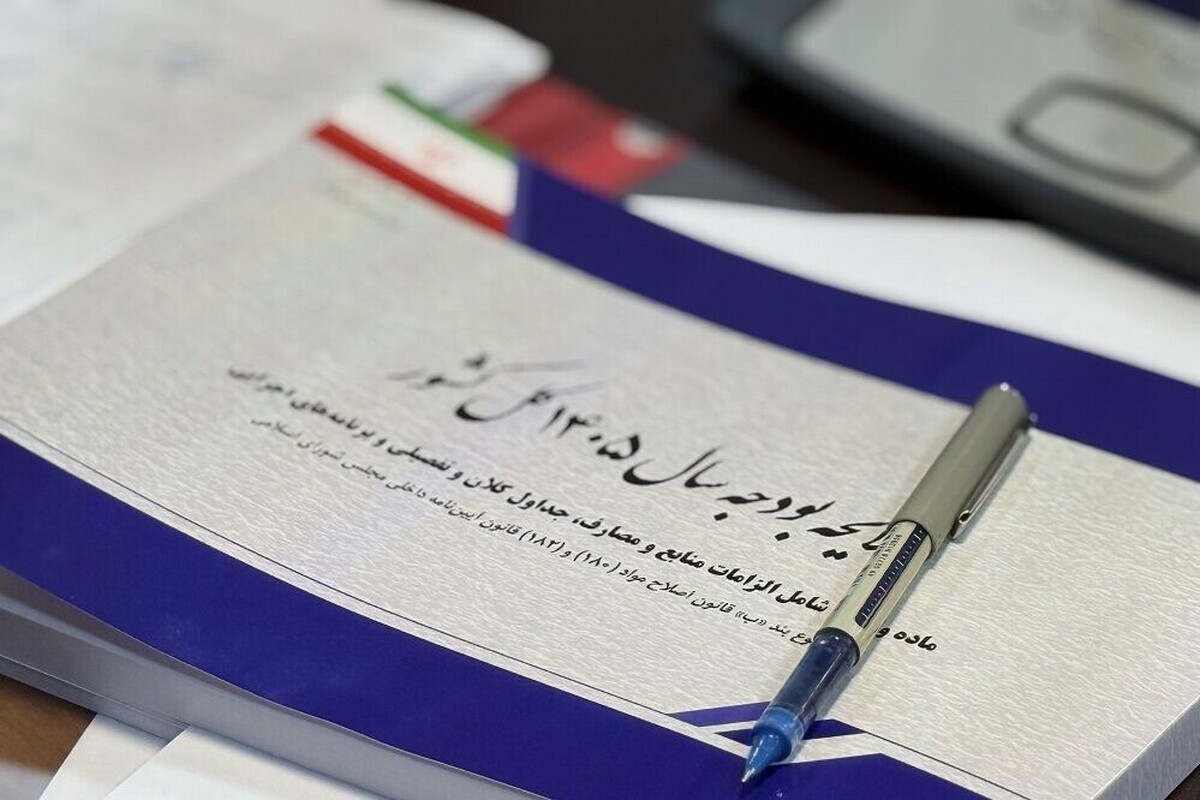 لایحه بودجه سال ۱۴۰۵ کل کشور
ماده و شامل الزامات منابع و مصارف، جداول کلان و تفصیلی و برنامه‌های اجرایی
وع بند «ب» قانون اصلاح مواد (۱۸۰) و (۱۸۲) قانون آیین‌نامه داخلی مجلس شورای اسلامی